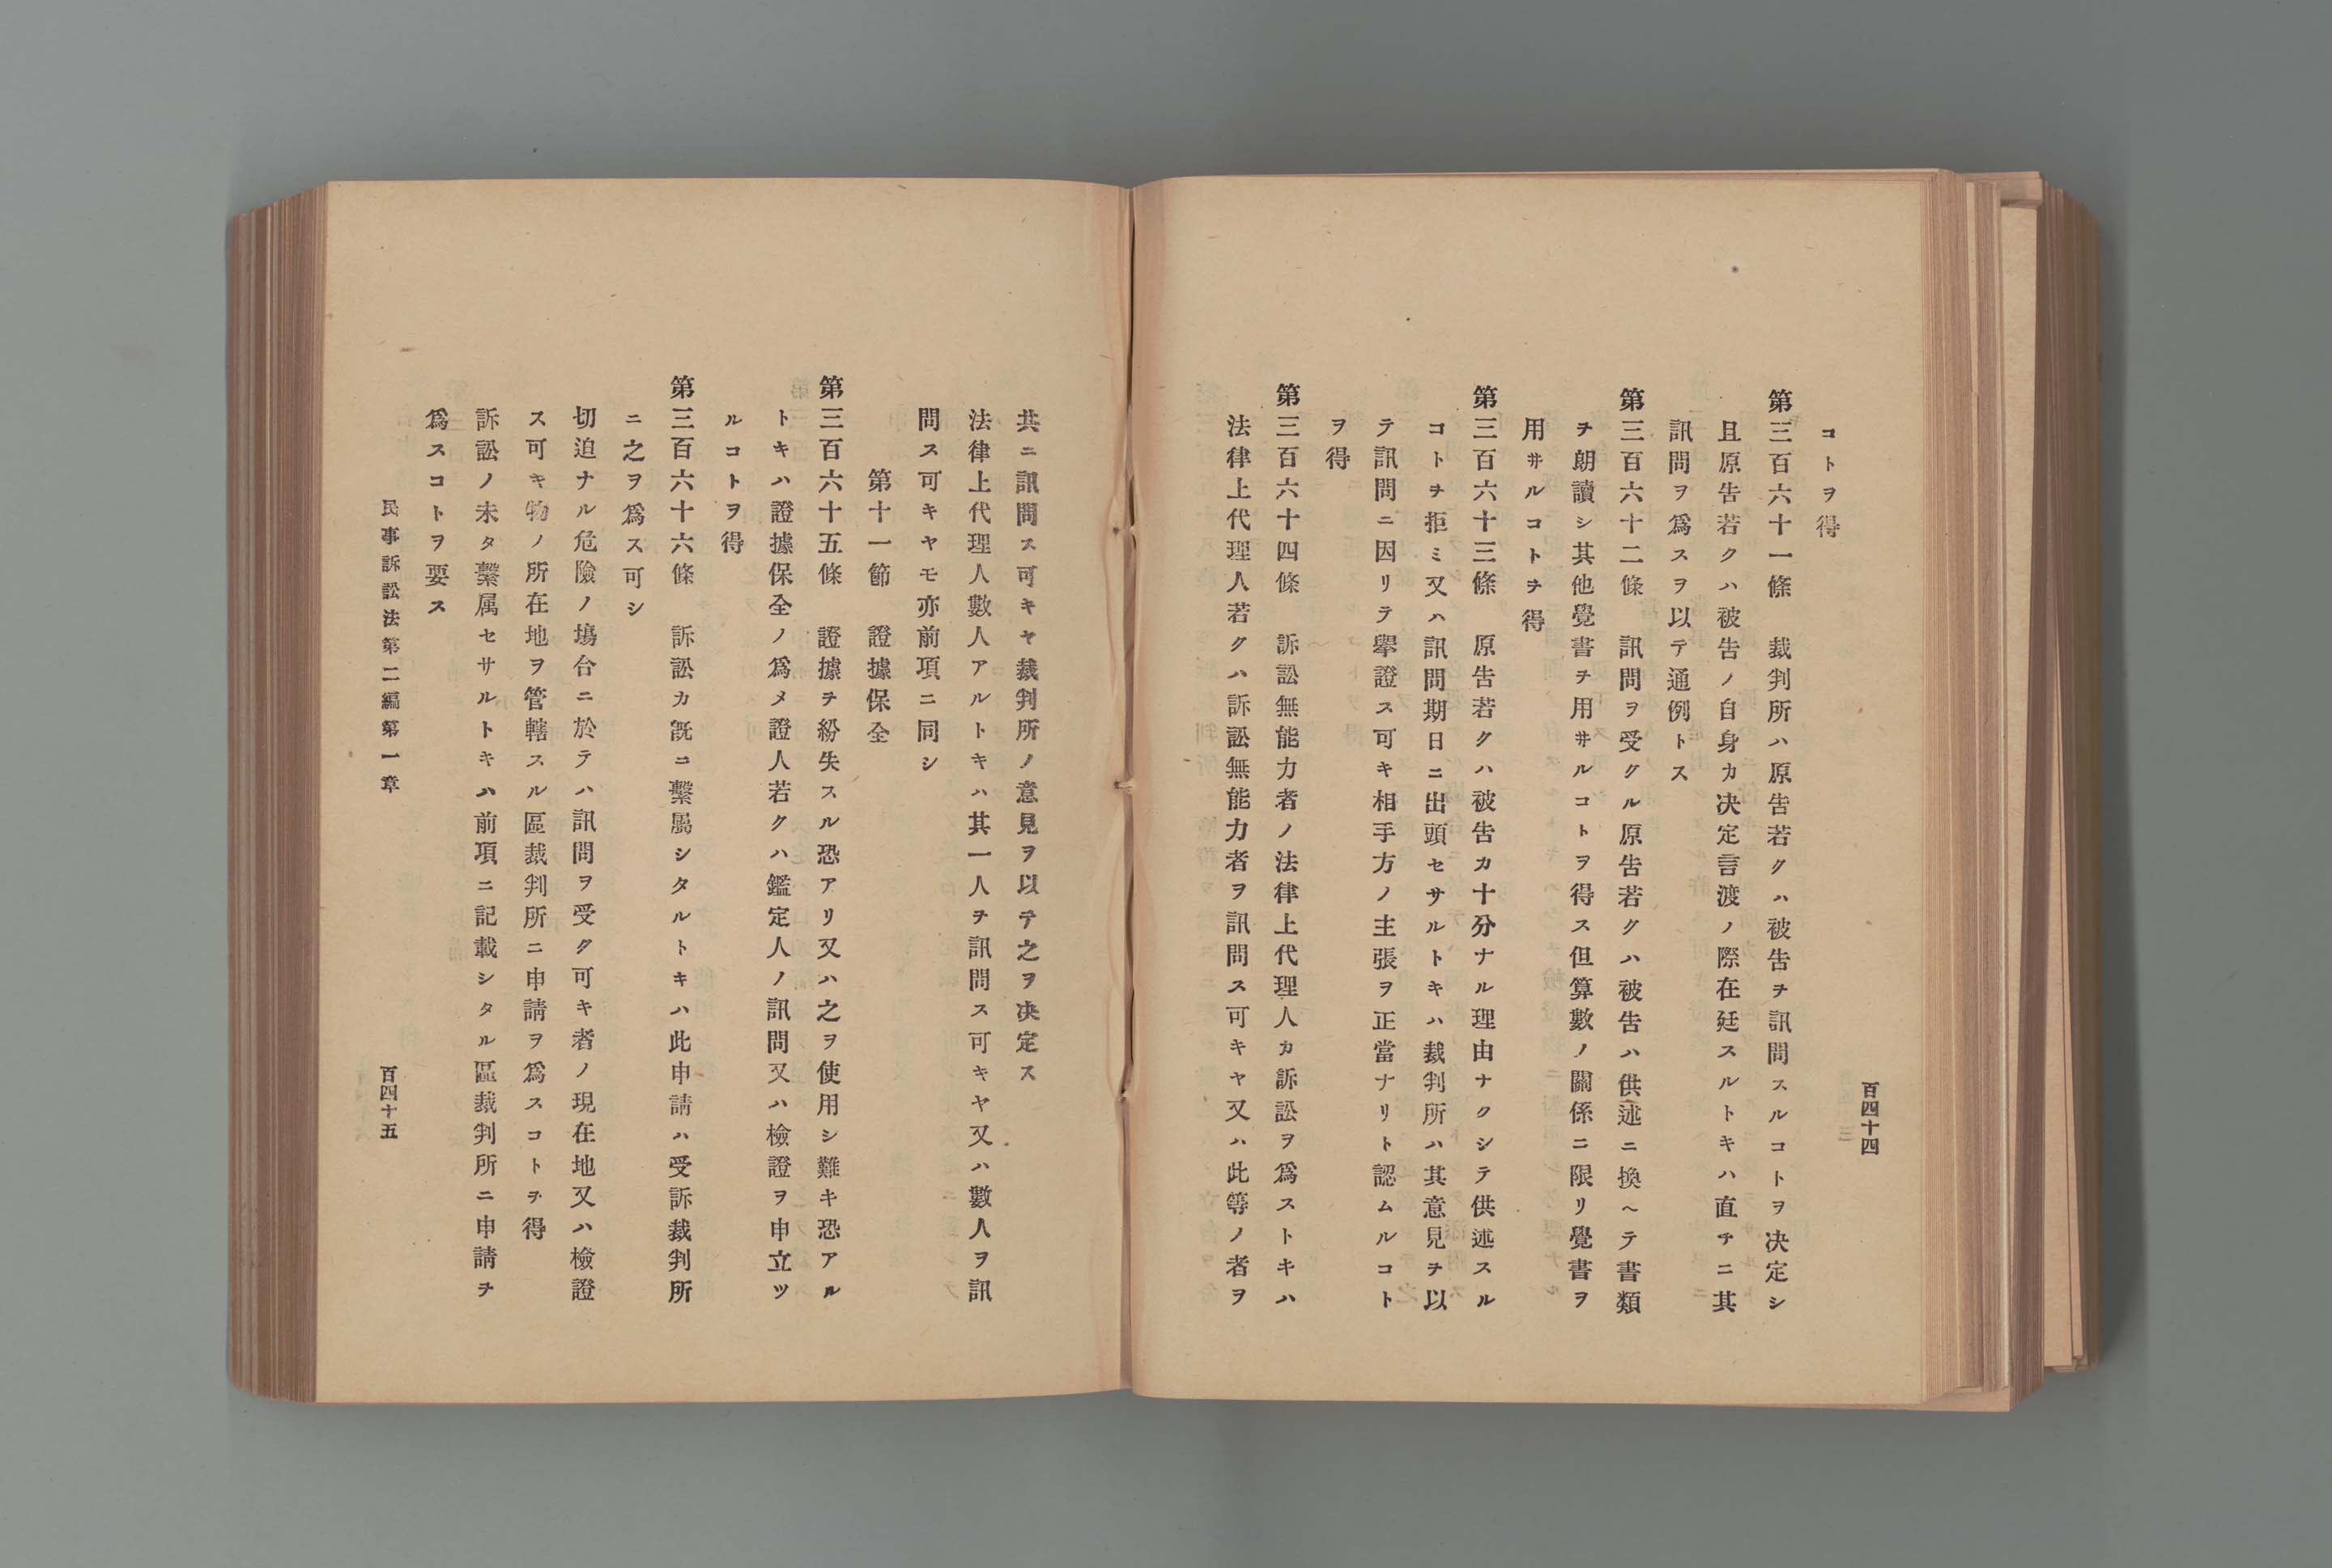 百四十四
コトヲ得
第三百六十一條　裁判所ハ原告若クハ被告ヲ訊問スルコトヲ决定シ
且原告若クハ被告ノ自身カ决定言渡ノ際在廷スルトキハ直チニ其
訊問ヲ爲スヲ以テ通例トス
第三百六十二條　訊問ヲ受クル原告若クハ被告ハ供述ニ換ヘテ書類
ヲ朗讀シ其他覺書ヲ用井ルコトヲ得ス但算數ノ關係ニ限リ覺書ヲ
用井ルコトヲ得
第三百六十三條　原告若クハ被告カ十分ナル理由ナクシテ供述スル
コトヲ拒ミ又ハ訊問期日ニ出頭セサルトキハ裁判所ハ其意見ヲ以
テ訊問ニ因リテ擧證ス可キ相手方ノ主張ヲ正當ナリト認ムルコト
ヲ得
第三百六十四條　訴訟無能力者ノ法律上代理人カ訴訟ヲ爲ストキハ
法律上代理人若クハ訴訟無能力者ヲ訊問ス可キヤ又ハ此等ノ者ヲ
共ニ訊問ス可キヤ裁判所ノ意見ヲ以テ之ヲ决定ス
法律上代理人數人アルトキハ其一人ヲ訊問ス可キヤ又ハ數人ヲ訊
問ス可キヤモ亦前項ニ同シ
第十一節　證據保全
第三百六十五條　證據ヲ紛失スル恐アリ又ハ之ヲ使用シ難キ恐アル
トキハ證據保全ノ爲メ證人若クハ鑑定人ノ訊問又ハ檢證ヲ申立ツ
ルコトヲ得
第三百六十六條　訴訟カ旣ニ繫屬シタルトキハ此申請ハ受訴裁判所
ニ之ヲ爲ス可シ
切迫ナル危險ノ塲合ニ於テハ訊問ヲ受ク可キ者ノ現在地又ハ檢證
ス可キ物ノ所在地ヲ管轄スル區裁判所ニ申請ヲ爲スコトヲ得
訴訟ノ未タ繫属セサルトキハ前項ニ記載シタル區裁判所ニ申請ヲ
爲スコトヲ要ス
民事訴訟法第二編第一章
百四十五